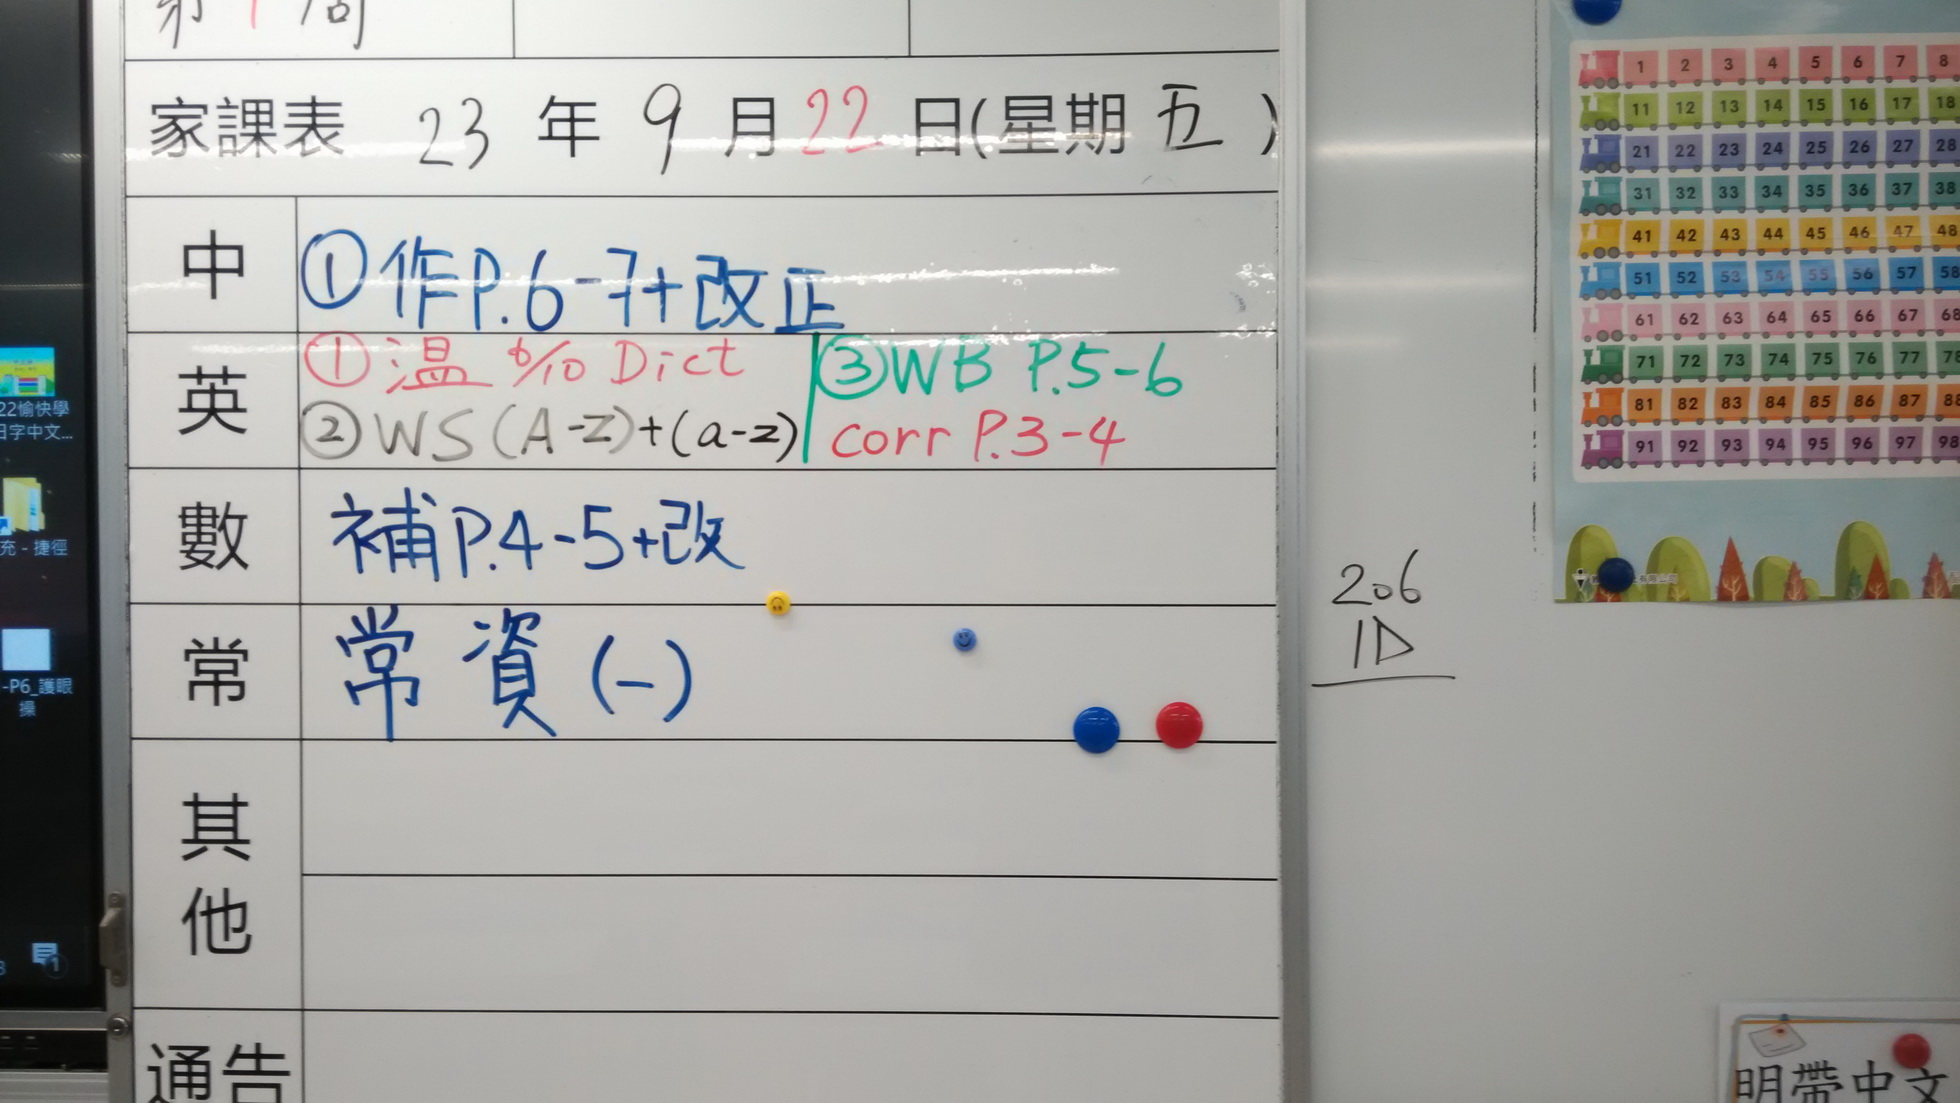 第1周
家課表 23 年 9 月 22 日(星期 五 )
中 ①作P.6-7+改正
英 ①溫 6/10 Dict
②WS (A-Z)+(a-z)
③WB P.5-6
corr P.3-4
數 補P.4-5+改
常 常 資 (一)
其他
通告
206
1D
1 2 3 4 5 6 7 8
11 12 13 14 15 16 17 18
21 22 23 24 25 26 27 28
31 32 33 34 35 36 37 38
41 42 43 44 45 46 47 48
51 52 53 54 55 56 57 58
61 62 63 64 65 66 67 68
71 72 73 74 75 76 77 78
81 82 83 84 85 86 87 88
91 92 93 94 95 96 97 98
明帶中文
22愉快學
日字中文...
充 - 捷徑
-P6_護眼
操